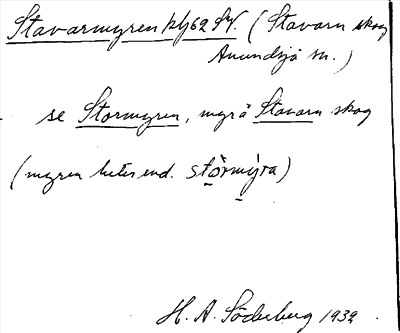 Stavarmyren klj62 SV. (Stavarn skog
Anundsjö sn.)
se Stormyren, myr å Stavarn skog
(myren heter end. stòrmýra)
H. A. Söderberg 1932